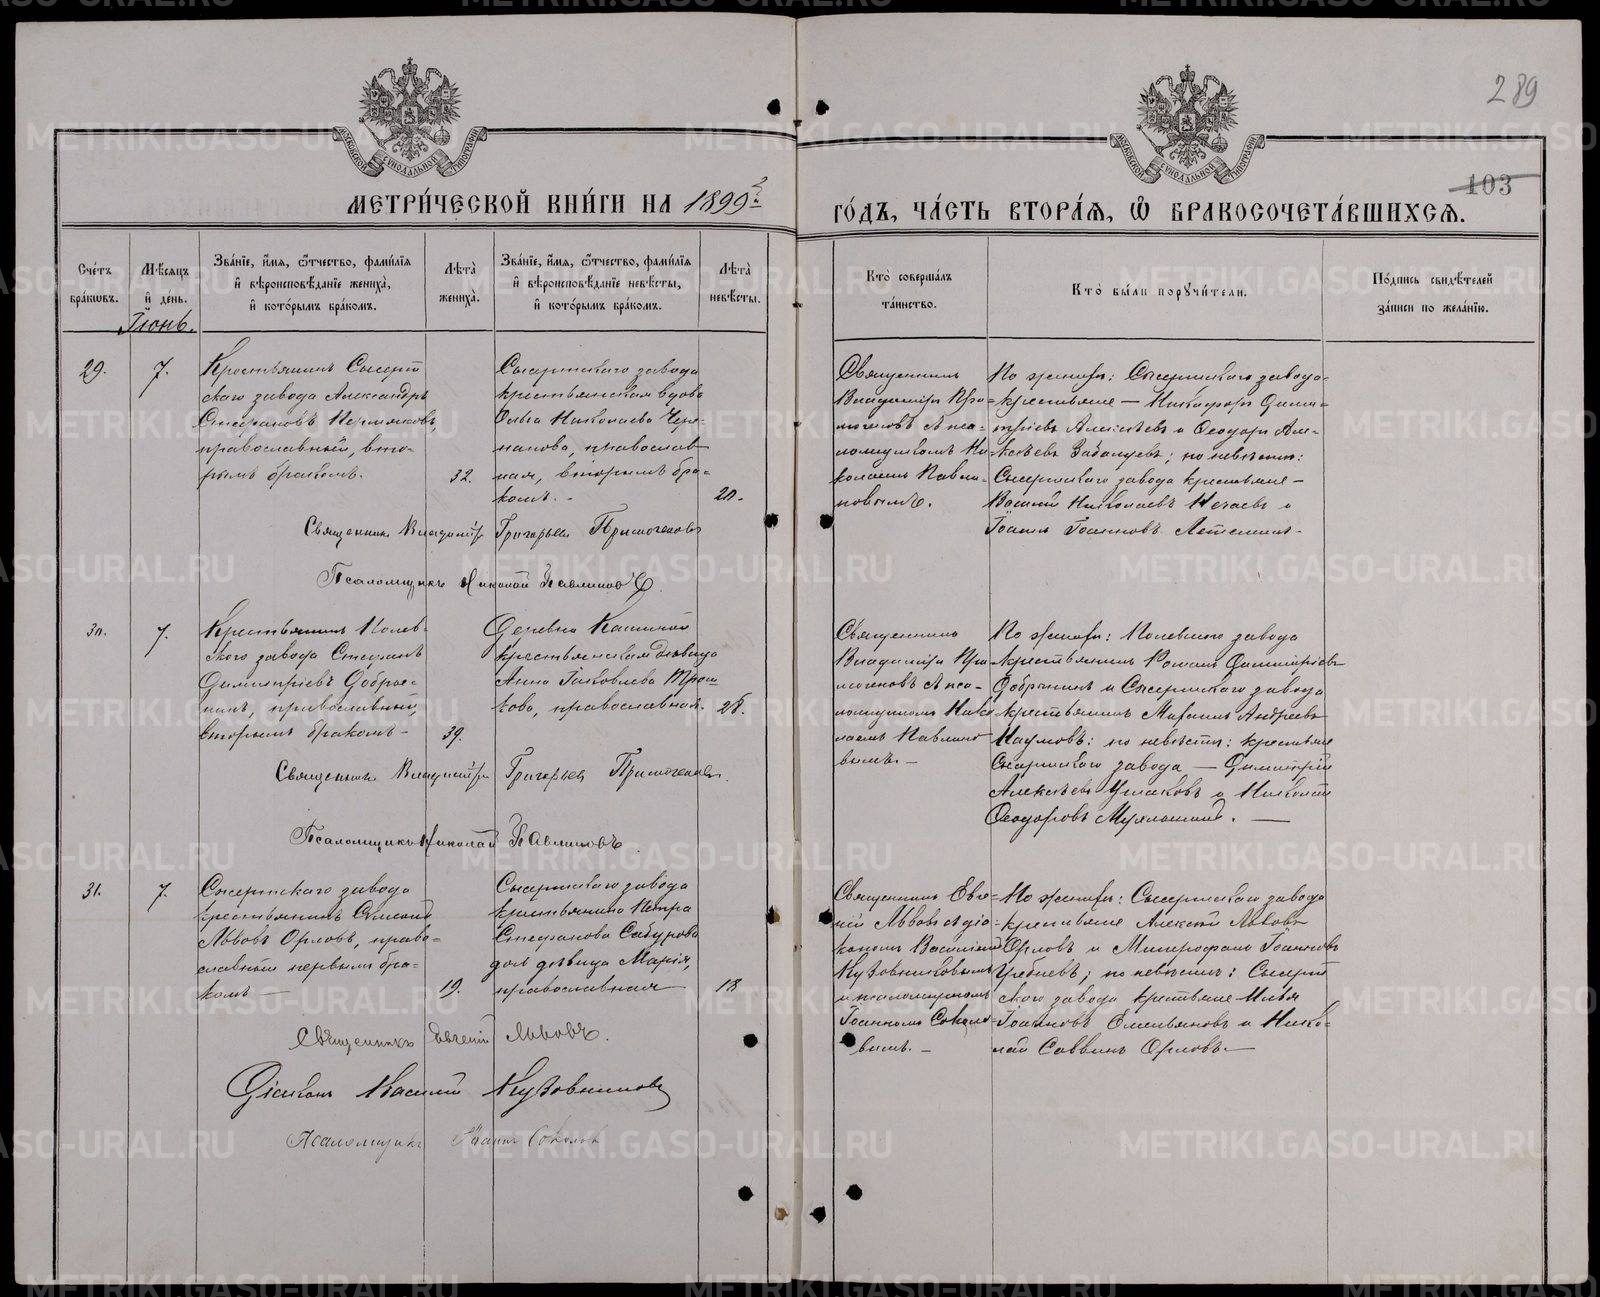 289
103
МОСКОВСКОЙ СѴНОДАЛЬНОЙ ТИПОГРАФІИ
МЕТРИ́ЧЕСКОЙ КНИ́ГИ НА 1899 г.
ГО́ДЪ, ЧА́СТЬ ВТОРА́Я, Ѿ БРАКОСОЧЕТА́ВШИХСЯ.
Сче́тъ бра́ковъ.
Мѣ́сяцъ и́ де́нь.
Зва́нїе, и́мя, ѻ́тчество, фами́лїя и́ вѣроисповѣ́данїе жениха̀, и́ кото́рымъ бра́комъ.
Лѣта̀ жениха̀.
Зва́нїе, и́мя, ѻ́тчество, фами́лїя и́ вѣроисповѣ́данїе невѣ́сты, и́ кото́рымъ бра́комъ.
Лѣта̀ невѣ́сты.
Кто̀ соверша́лъ та́инство.
Кто̀ бы́ли поручи́тели.
По́дпись свидѣ́телей за́писи по жела́нїю.
Іюнь.
29.
7.
Крестьянинъ Сысерт-
скаго завода Александръ
Стефановъ Пермяковъ,
православный, вто-
рымъ бракомъ.
32.
Сысертскаго завода
крестьянская вдова
Ольга Николаева Чере-
панова, православ-
ная, вторымъ бра-
комъ.
20.
Священникъ
Владиміръ При-
могеновъ с пса-
ломщикомъ Ни-
колаемъ Павли-
новымъ.
По женихѣ: Сысертскаго завода
крестьяне — Никифоръ Дими-
тріевъ Алексѣевъ и Ѳеодоръ Але-
ксѣевъ; по невѣстѣ:
Сысертскаго завода крестьяне —
Василій Николаевъ Нечаевъ и
Іоаннъ Іоанновъ Летеминъ.
Священникъ Владиміръ Григорьевъ Примогеновъ
Псаломщикъ Николай Павлиновъ.
30.
7.
Крестьянинъ Полев-
скаго завода Стефанъ
Димитріевъ Добры-
нинъ, православный,
вторымъ бракомъ —
39.
Деревни Кашиной
крестьянская дѣвица
Анна Іаковлева
православная.
28.
Священникъ
Владиміръ При-
могеновъ с пса-
ломщикомъ Нико-
лаемъ Павлино-
вымъ. —
По женихѣ: Полевскаго завода
крестьянинъ Романъ Димитріевъ
Добрынинъ и Сысертскаго завода
крестьянинъ Андреевъ
Наумовъ; по невѣстѣ: крестьяне
Сысертскаго завода — Димитрій
Алексѣевъ Ушаковъ и Николай
Ѳеодоровъ Мухлынинъ. —
Священникъ Владиміръ Григорьевъ Примогеновъ.
Псаломщикъ Николай Павлиновъ.
31.
7.
Сысертскаго завода
крестьянинъ
Львовъ Орловъ, право-
славный первымъ бра-
комъ —
19.
Сысертскаго завода
крестьянина Петра
Стефанова Сабурова
дочь дѣвица Марія,
православная
18
Священникъ Евге-
ній Львовъ с діа-
кономъ Василіемъ
Кузовниковымъ
и псаломщикомъ
Іоанномъ Соколо-
вымъ. —
По женихѣ: Сысертскаго завода
крестьяне Алексѣй Львовъ
Орловъ и Митрофанъ Іоанновъ
по невѣстѣ: Сысерт-
скаго завода крестьяне Илья
Іоанновъ Емельяновъ и Нико-
лай Саввинъ Орловъ. —
Священникъ Евгеній Львовъ.
Діаконъ Василій Кузовниковъ
Псаломщикъ Іоаннъ Соколовъ
METRIKI.GASO-URAL.RU